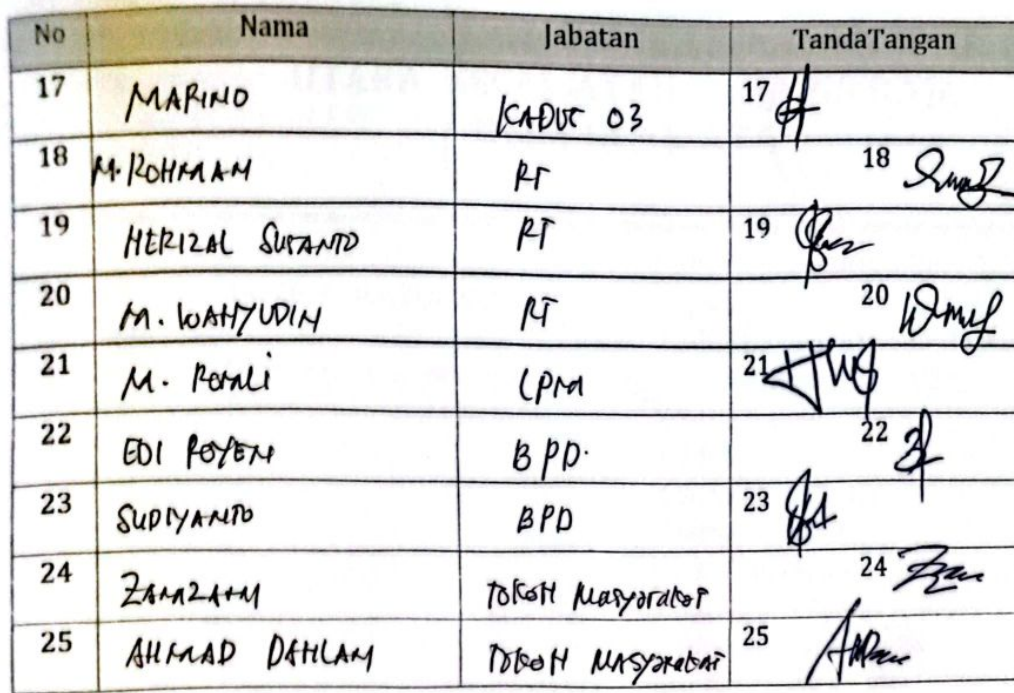 No Nama Jabatan TandaTangan
17 MARINO KADUS 03 17
18 M. ROHMAN RT 18
19 HERIZAL SUSANTO RT 19
20 M. WAHYUDIN RT 20
21 M. Romli LPM 21
22 EDI 22 BPD. 22
23 SUDIYANTO BPD 23
24 ZAMZAM TOKOH Masyarakat 24
25 AHMAD DAHLAN TOKOH MASYARAKAT 25